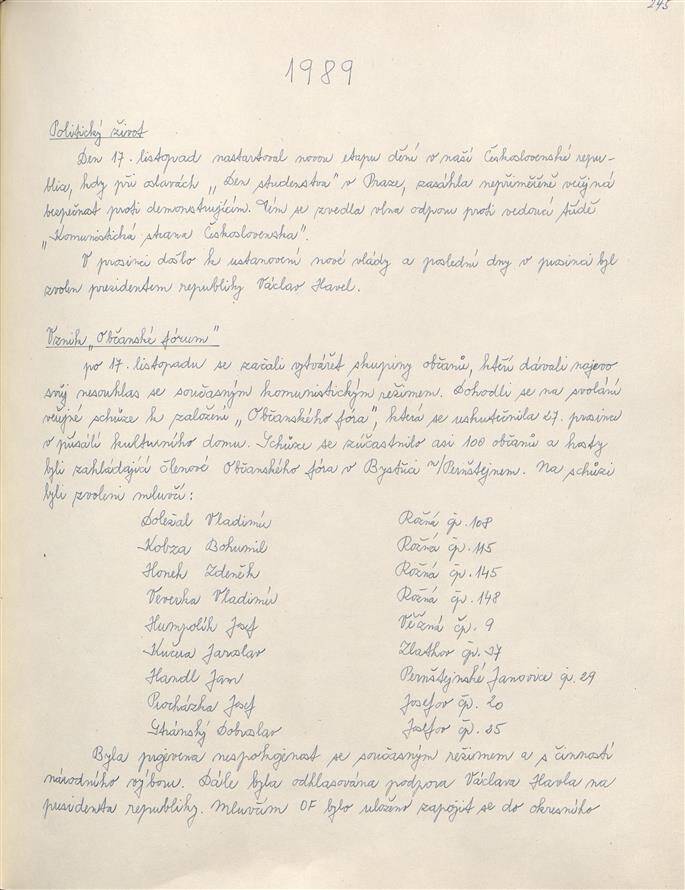 245
1989
Politický život
Den 17. listopad nastartoval novou etapu dění v naší Československé repu-
blice, kdy při oslavách „Den studenstva" v Praze, zasáhla nepřiměřěně veřejná
bezpečnost proti demonstrujícím. Tím se zvedla vlna odporu proti vedoucí třídě
„Komunistická strana Československa".
V prosinci došlo k ustanovení nové vlády a poslední dny v prosinci byl
zvolen prezidentem republiky Václav Havel.
Vznik „Občanské fórum"
po 17. listopadu se začali vytvářet skupiny občanů, kteří dávali najevo
svůj nesouhlas se současným komunistickým režimem. Dohodli se na svolání
veřejné schůze k založení „Občanského fóra", která se uskutečnila 27. prosince
v přísálí kulturního domu. Schůze se zúčastnilo asi 100 občanů a hosty
byli zakládající členové Občanského fóra v Bystřici n/Pernštejnem. Na schůzi
byli zvoleni mluvčí:
Doležal Vladimír Rožná čp. 108
Kobza Bohumil Rožná čp. 115
Honek Zdeněk Rožná čp. 145
Veverka Vladimír Rožná čp. 148
Humpolík Josef Věžná čp. 9
Kučera Jaroslav Zlatkov čp. 37
Handl Jan Pernštejnské Janovice čp. 29
Procházka Josef Josefov čp. 20
Stránský Dobroslav Josefov čp. 35
Byla projevena nespokojenost se současným režimem a s činností
národního výboru. Dále byla odhlasována podpora Václava Havla na
presidenta republiky. Mluvčím OF bylo uloženo zapojit se do okresního